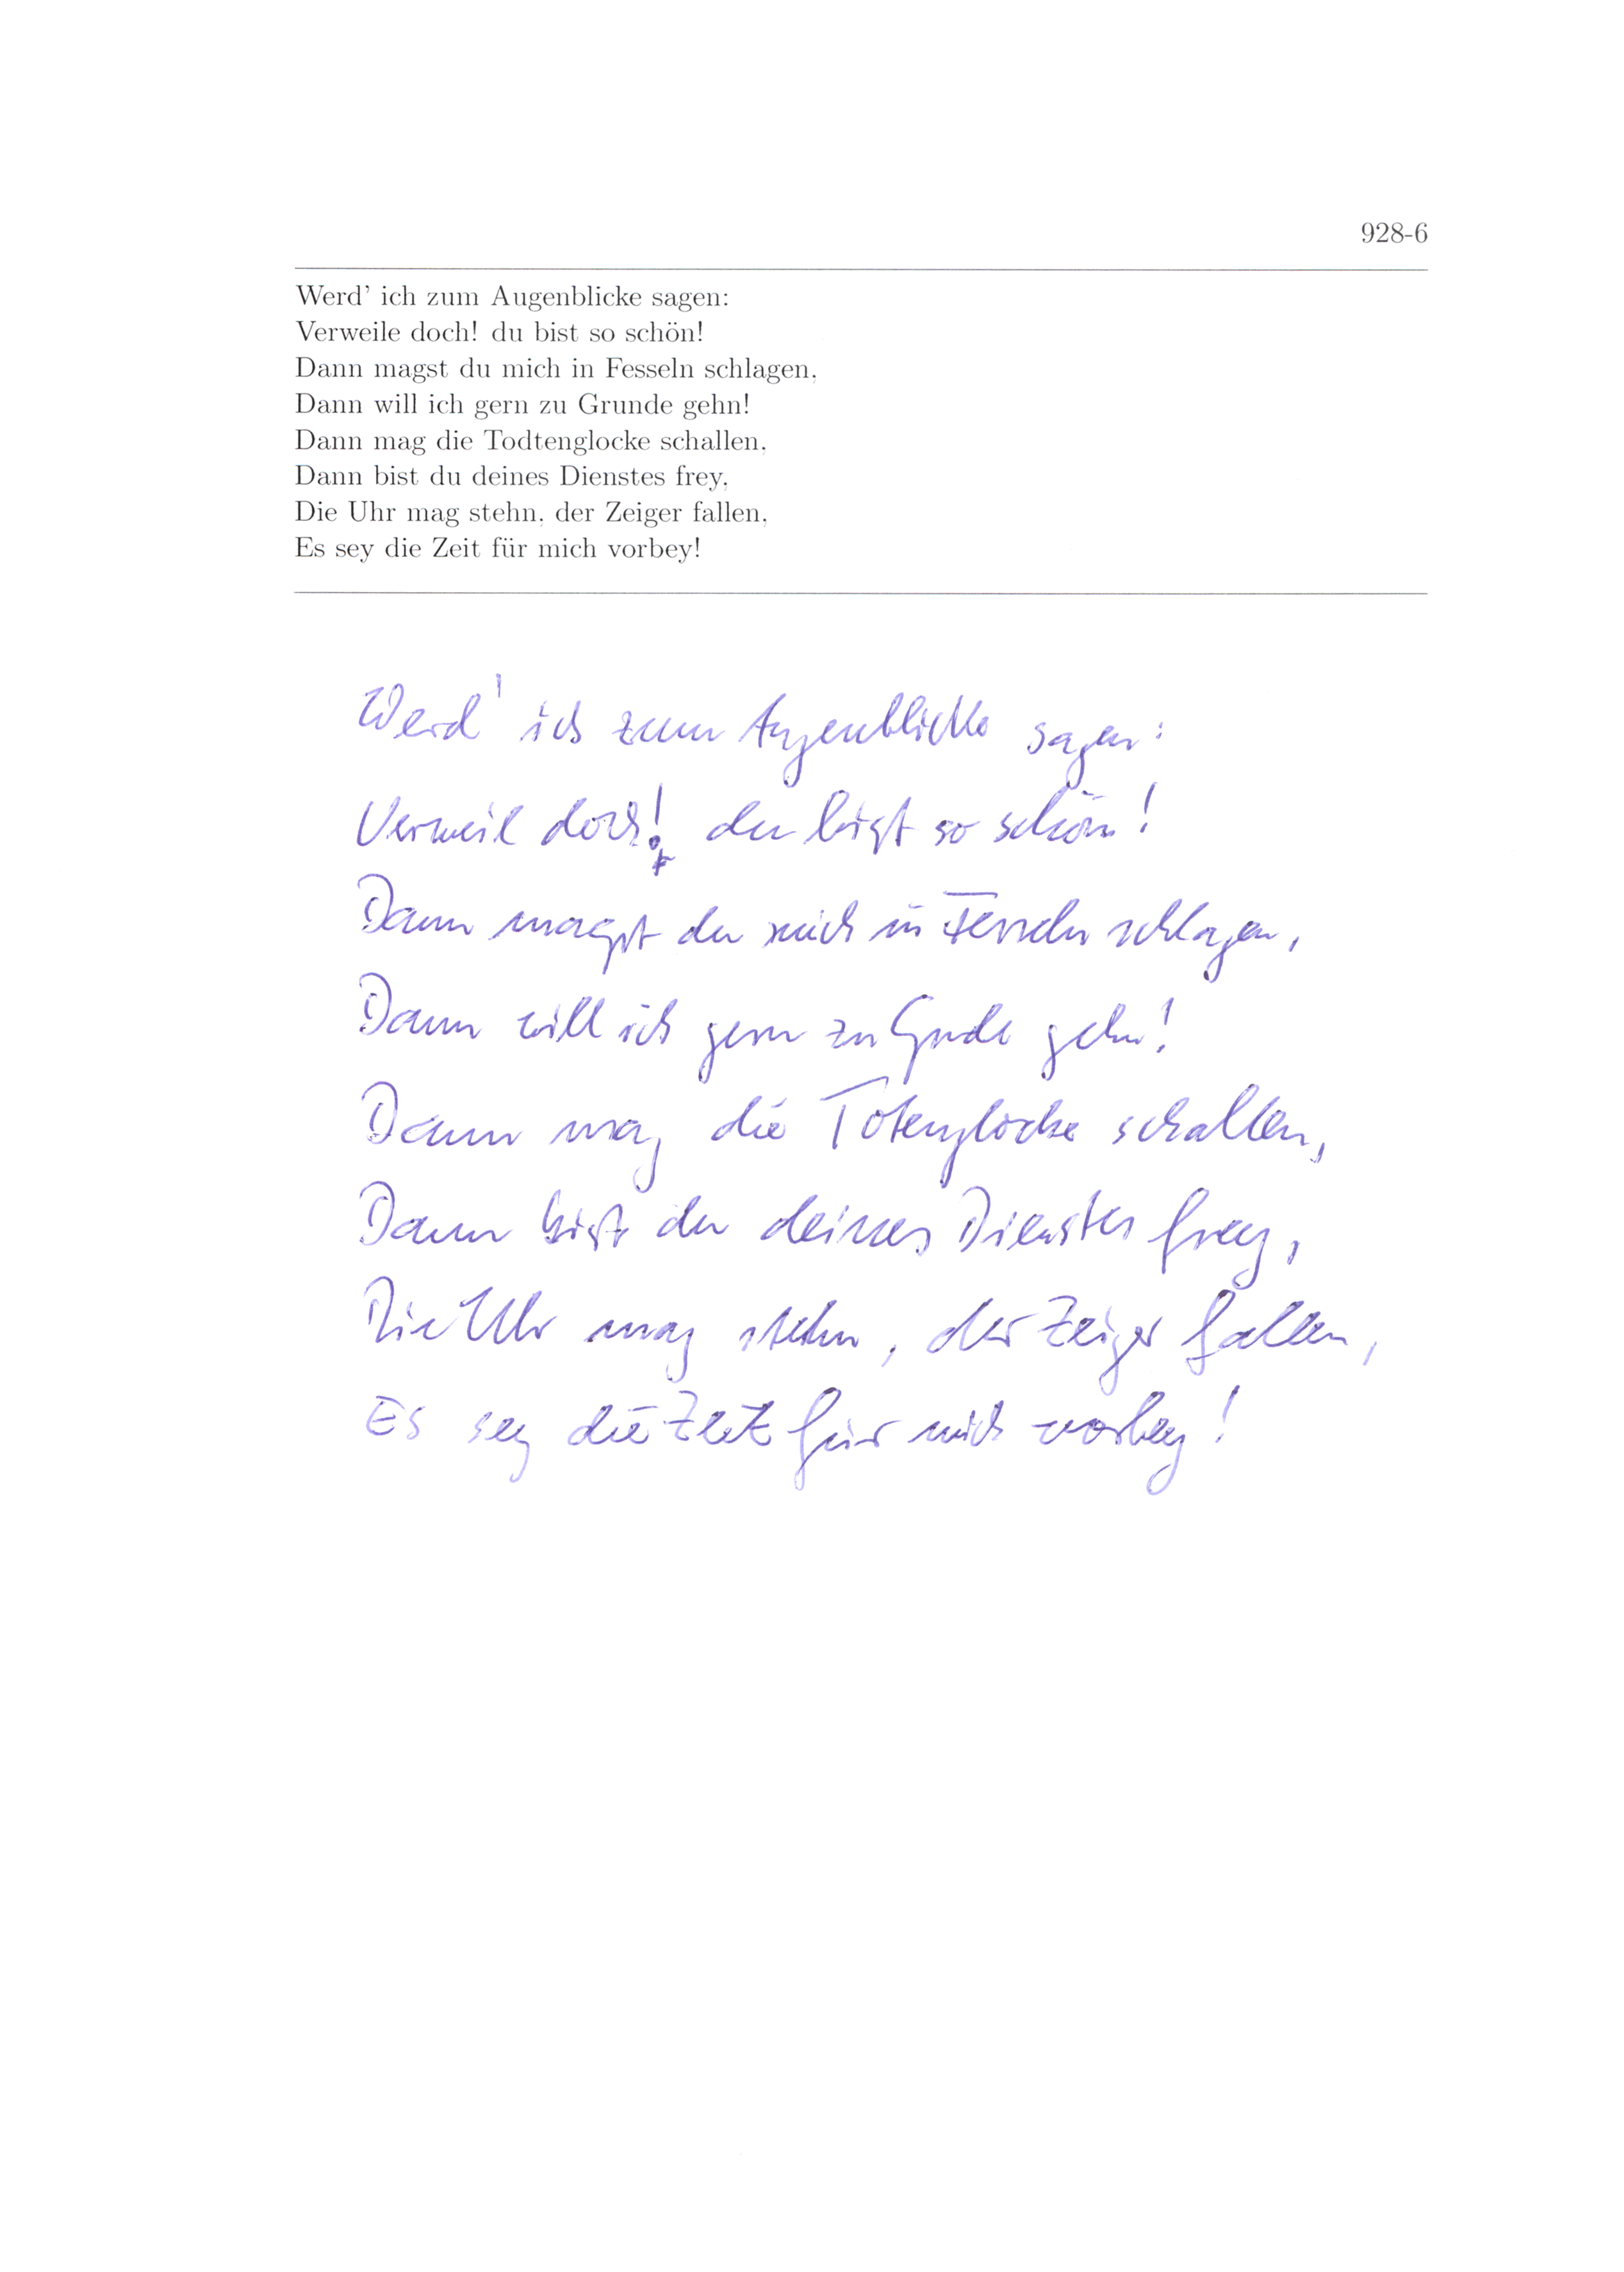 928-6
Werd' ich zum Augenblicke sagen:
Verweile doch! du bist so schön!
Dann magst du mich in Fesseln schlagen,
Dann will ich gern zu Grunde gehn!
Dann mag die Todtenglocke schallen,
Dann bist du deines Dienstes frey,
Die Uhr mag stehn, der Zeiger fallen,
Es sey die Zeit für mich vorbey!
Werd' ich zum Augenblicke sagen:
Verweil doch! du bist so schön!
Dann magst du mich in Fesseln schlagen,
Dann will ich gern zu Grude gehn!
Dann mag die Totenglocke schallen,
Dann bist du deines Dienstes frey,
Die Uhr mag stehn, der Zeiger fallen,
Es sey die Zeit für mich vorbey!